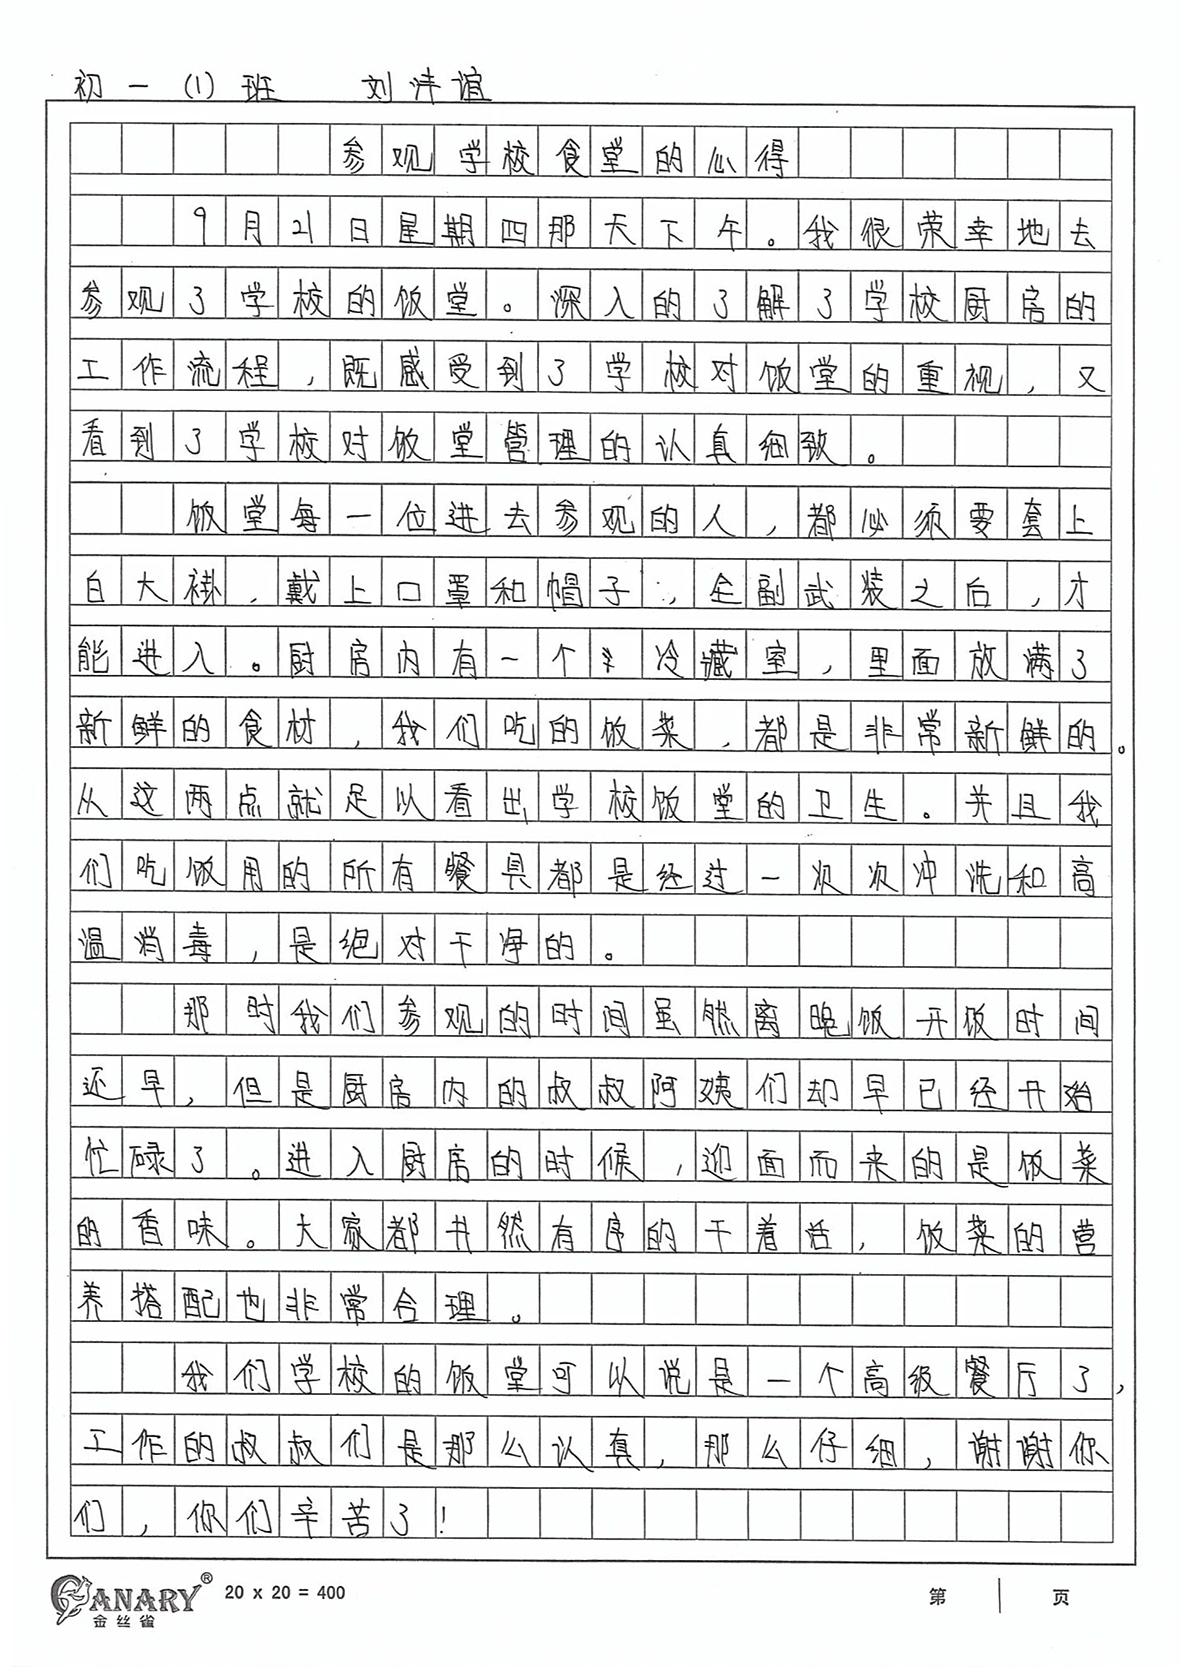 初一(1)班 刘沣谊
参观学校食堂的心得
9月21日星期四那天下午。我很荣幸地去
参观了学校的饭堂。深入的了解了学校厨房的
工作流程，既感受到了学校对饭堂的重视，又
看到了学校对饭堂管理的认真细致。
饭堂每一位进去参观的人，都必须要套上
白大褂，戴上口罩和帽子，全副武装之后，才
能进入。厨房内有一个冷藏室，里面放满了
新鲜的食材，我们吃的饭菜，都是非常新鲜的。
从这两点就足以看出学校饭堂的卫生。并且我
们吃饭用的所有餐具都是经过一次次冲洗和高
温消毒，是绝对干净的。
那时我们参观的时间虽然离晚饭开饭时间
还早，但是厨房内的叔叔阿姨们却早已经开始
忙碌了。进入厨房的时候，迎面而来的是饭菜
的香味。大家都井然有序的干着活，饭菜的营
养搭配也非常合理。
我们学校的饭堂可以说是一个高级餐厅了，
工作的叔叔们是那么认真，那么仔细，谢谢你
们，你们辛苦了！
CANARY® 20 x 20 = 400 第 页
金丝雀